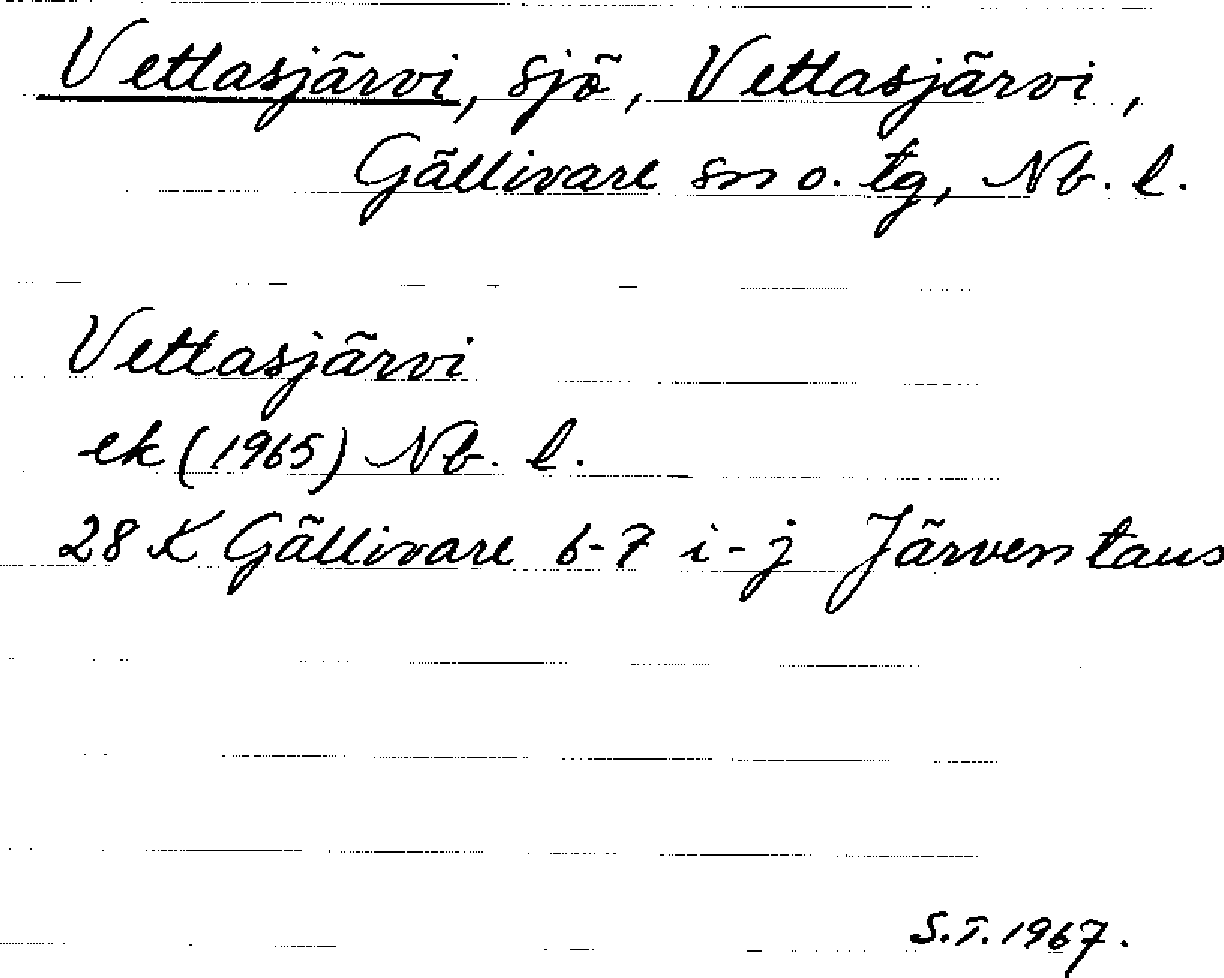 Vettasjärvi, sjö, Vettasjärvi,
Gällivare sn o. tg, Nb. l.
Vettasjärvi
ek (1965) Nb. l.
28 K Gällivare 6-7 i-j Järventaus
S.T. 1967.